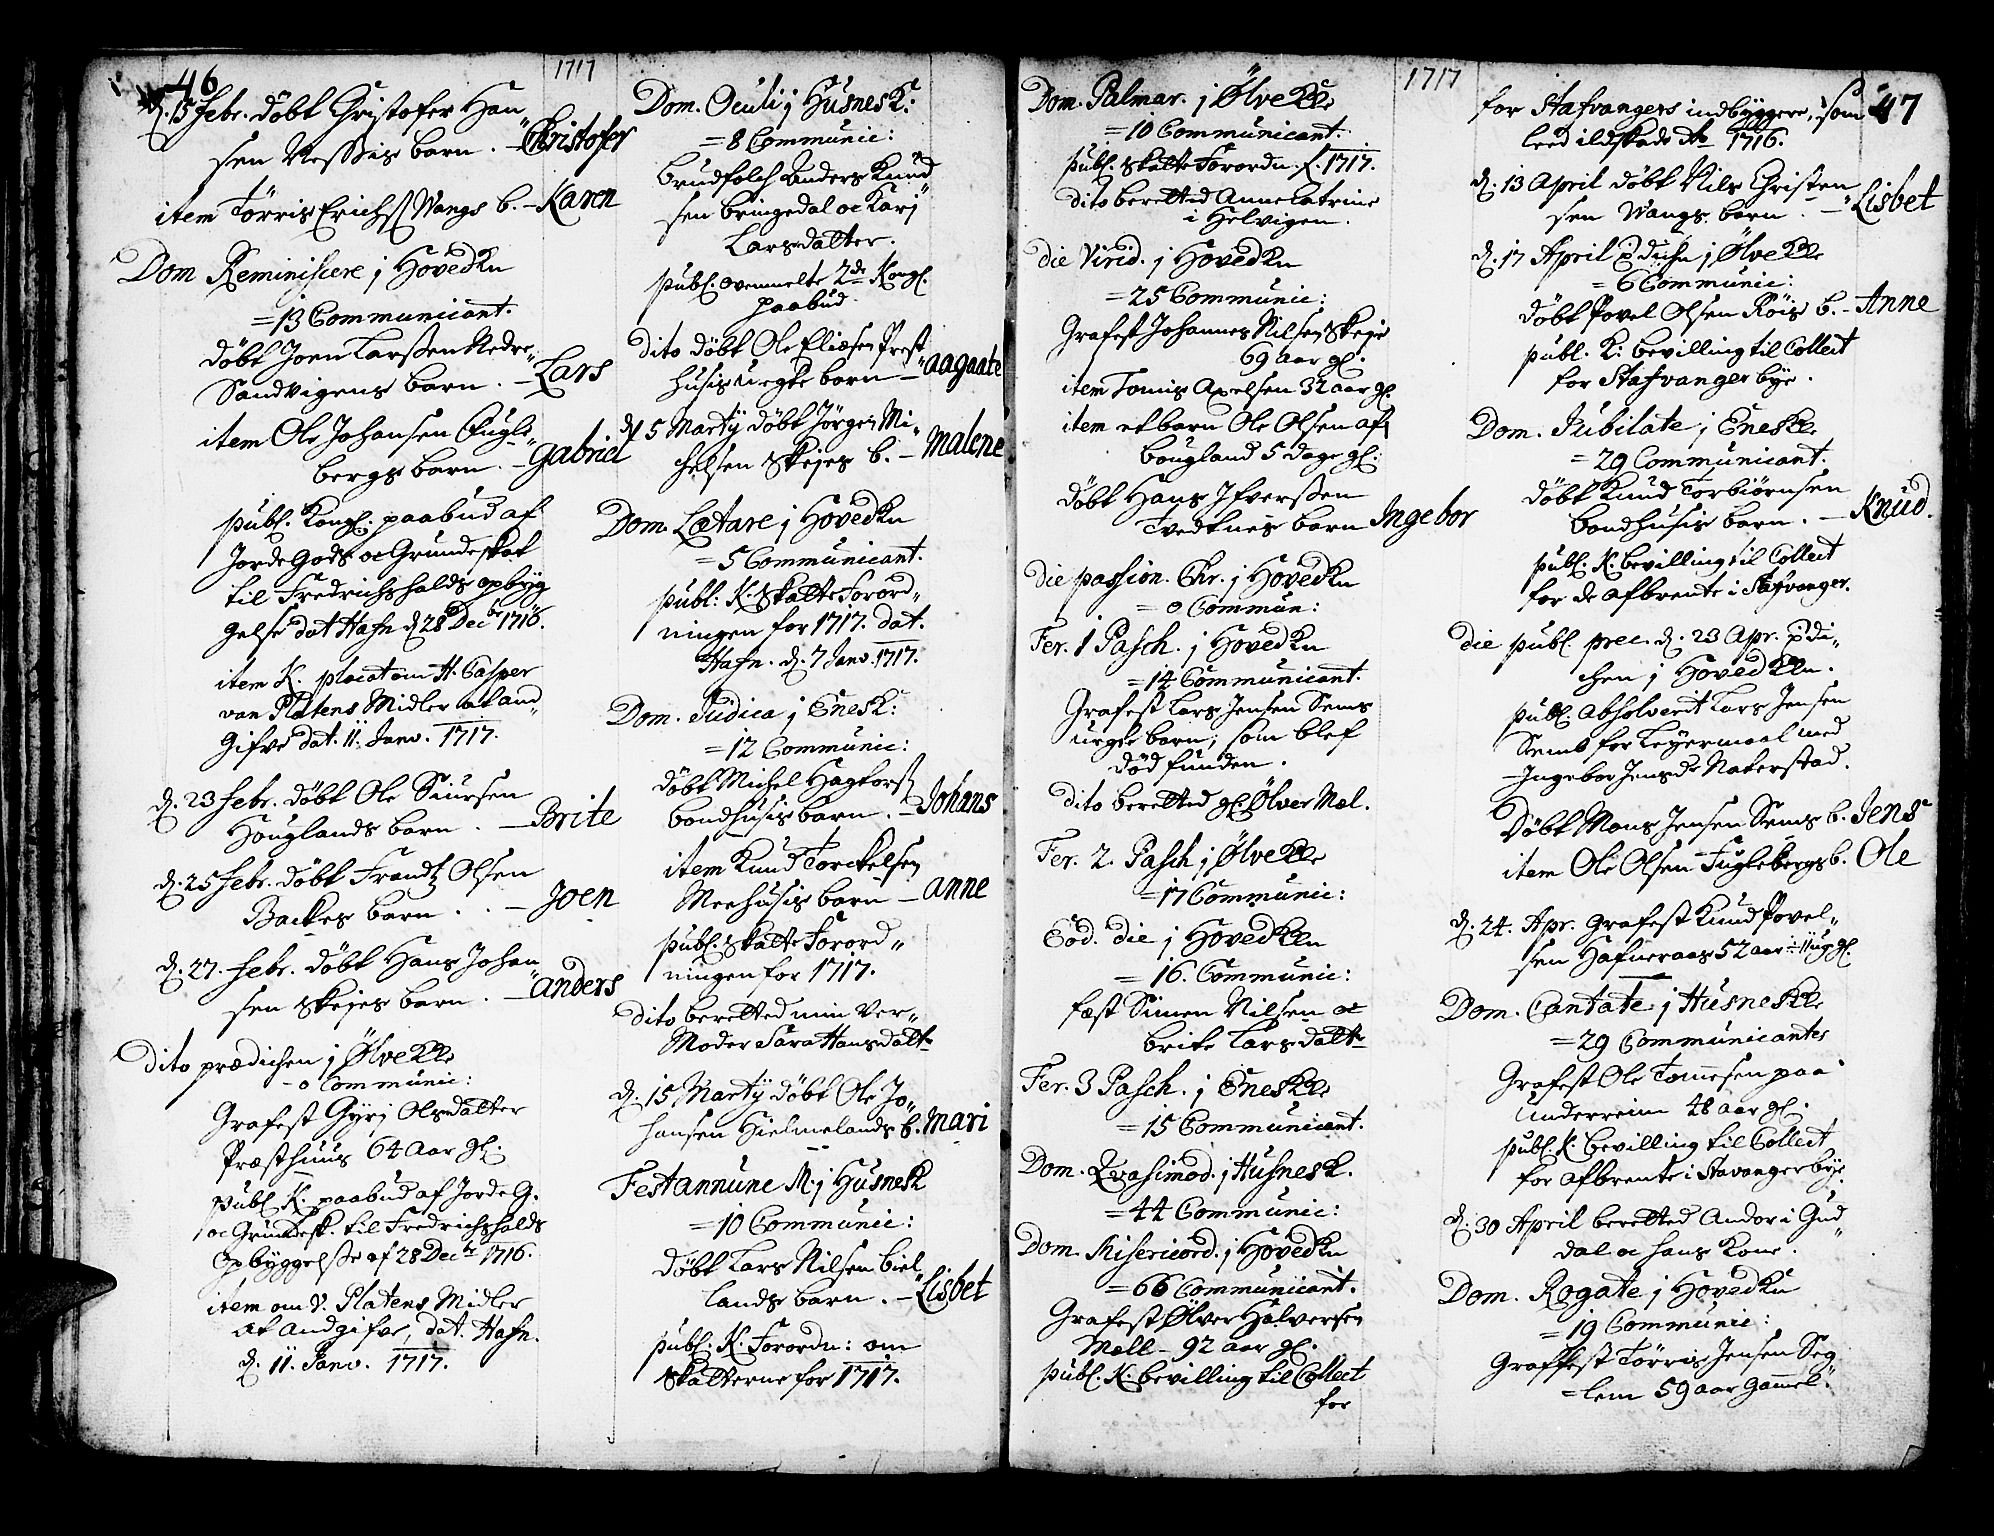 46
1717
d. 15 Febr. döbt Christofer Han„
sen Nessis barn. – Christofer
item Törris Erichs. Wangs b. – Karen
Dom Reminiscere j Hovedkn
= 13 Communicant.
döbt Joen Larssen Nedre„
Sandvigens barn. – Lars
item Ole Johansen Fugle„
bergs barn. – Gabriel
publ. Kongl. paabud af
Jordegods oc Grundeskat
til Fredrichshalds opbyg
gelse dat Hafn d 28 Decbr 1716.
item K. placat om H. Casper
van Platens Midler at and„
gifve dat. 11. Janv. 1717.
d. 23 Febr. döbt Ole Siursen
Houglands barn. – Brite
d. 25 Febr. döbt Frandtz Olsen
Backes barn. . – Joen
d. 27. Febr. döbt Hans Johan„
sen Skejes barn. – Anders
Dito prædichen j Ölve KK
– 0 Communic:
Grafest Gyrj Olsdatter
Præsthuus 64 Aar gl.
publ K. paabud af Jorde G.
oc Grundesk. til Fredrichshalds
Opbyggelsse af 28 Decbr 1716.
item om V. Platens Midler
at andgifve, dat. Hafn.
d. 11. Janv. 1717.
Dom. Oculi j Husnes K:
= 8 Communic:
brudfolch Anders Knud„
sen bringedal oc Karj
Larsdatter.
publ. ovenmelte 2de Kongl.
paabud.
Dito döbt Ole Eliæsen Prest„
husis uegte barn – Aagaate
d 5 Martij döbt Jörgen Mi„
chelsen Skejes b. – Malene
Dom. Lætare j Hovedkn
= 5 Communicant.
publ: K. Skatte Forord„
ningen for 1717. dat.
Hafn. d. 7 Janv. 1717.
Dom. Judica j EnesK:
= 12 Communic:
döbt Michel Hagtors.
bondhusis barn. – Johans
item Knud Torckelsen
Meehusis barn – Anne
publ. Skatte Forord„
ningen for 1717.
Dito beretted min Ver„
Moder Sara Hansdaltr
d. 15 Martij döbt Ole Jo„
hansen Hielmelands b. Mari
Fest annunc M. j Husnes K
= 10 Communic:
döbt Lars Nilsen biel„
lands barn. – Lisbet
publ. K. Forordn: om
Skatterne for 1717.
Dom. Palmar. j Ölve KK
1717
= 10 Communicant.
publ. Skatte Forordn. f. 1717.
Dito beretted Anne Catrine
i Helvigen.
Die Virid. j Hovedkn
= 25 Communic:
Grafest Johannes Nilsen Skeje
69 aar gl.
item Tomis Axelsen 32 aar gl.
item et barn Ole Olsen af
bougland 5 dage gl:
döbt Hans Ifverssen
Tvedtnes barn Ingebor
Die passion. Chr. j Hovedkn
= 0 Commun:
Fer. 1 Pasch. j Hovedkn
= 14 Communicant.
Grafest Lars Jensen Sems
uegte barn, som blef
död funden.
Dito beretted gl. Ölver Mæl.
Fer. 2. Pasch j Ölve KK
= 17 Communic:
Eod. die j HovedKkn
= 16. Communic:
fæst Simen Nilsen oc
brite Larsdaltr
Fer. 3 Pasch. j Enes KK
= 15 Communicant.
Dom. Qvasimod. j Husnes K.
= 44 Communic:
Dom. Misericord. j Hovedkn
= 66 Communicant.
Grafest Ölver Halversen
Mæll – 92 aar gl.
publ. K. bevilling til Collect
for
47
for Stafvangers indbyggere, som
leed ildskade Ao 1716.
d. 13 April döbt Nils Christen„
sen Wangs barn. – Lisbet
d. 17 April j Ölve KK
= 6 Communic:
döbt Povel Olsen Röis b. – Anne
publ. K: bevilling til Collect
for Stafvanger bye.
Dom. Jubilate j Enes KK
= 29 Communicant.
döbt Knud Torbiörnsen
bondhusis barn. – Knud.
publ. K. bevilling til Collect
for de afbrente i Stafvanger.
Die publ. prec. d. 23 Apr. prædi„
chen j HovedKkn.
publ. absolveret Lars Jensen
Sembs for Leyermaal med
Ingebor Jensdr Naterstad.
Döbt Mons Jensen Sems b. Jens
item Ole Olsen Fuglebergs b. Ole
d. 24. Apr. Grafest Knud Povel„
sen Hafneraas 52 aar ÷ 11 ug gl.
Dom. Cantate j Husnes KK
= 29 Communicanter
Grafest Ole Tomesen paa
Underreim 48 aar gl.
publ. K. bevilling til Collect
for Afbrente i Stavanger bye.
d. 30 April beretted Andor i Gud„
dal oc hans Kone.
Dom. Rogate j Hovedkn
= 19 Communic:
Graffest Törris Jensen Seg„
= lem 59 aar gammel.